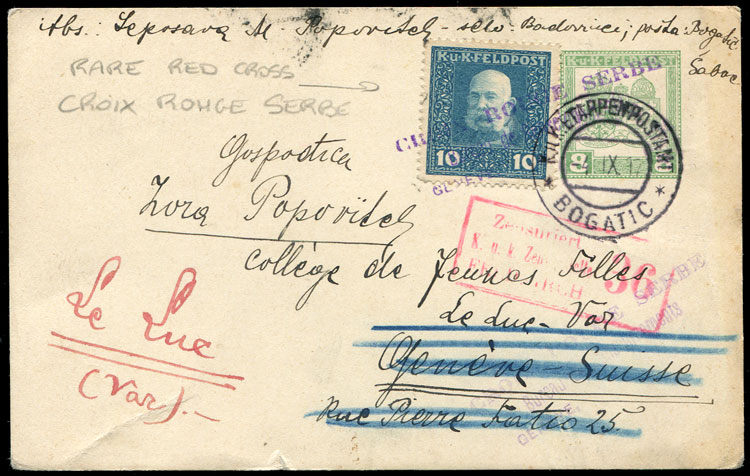 Abs: Leposava M. Popovitch - selo: Badovinci; pošta: Bogatić
Šabac
RARE RED CROSS
CROIX ROUGE SERBE
K.u.K. FELDPOST
10 10
K.u.K. FELDPOST
ROUGE SERBE
K.u.K. ETAPPENPOSTAMT
IX 17
BOGATIC
Gospodjica
Zora Popovitch
Zensuriert
K. u. k.
36
Collège de Jeunes Filles
SERBE
Le Luc - Var
Le Luc
(Var).-
Genève-Suisse
Rue Pierre Fatio 25.